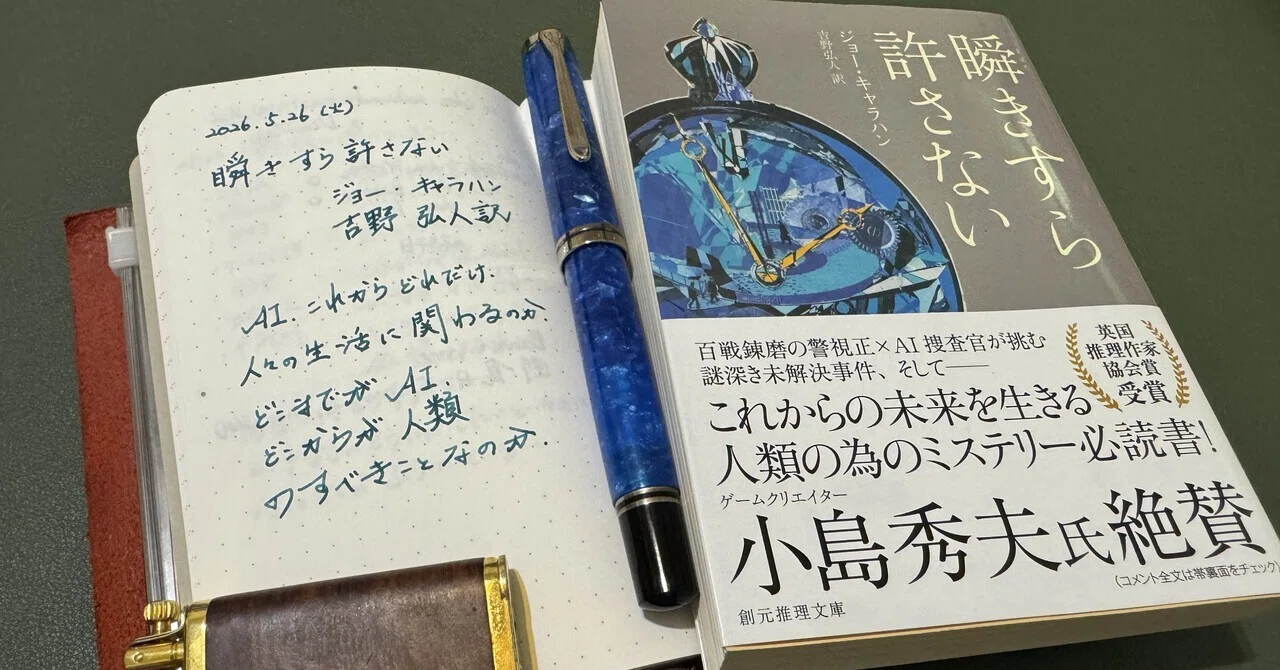 2026.5.26 (火)
瞬きすら許さない
ジョー・キャラハン
吉野 弘人訳
AI. これからどれだけ、
人々の生活に関わるのか、
どこまでが AI.
どこからが 人類
のすべきことなのか.
瞬きすら
許さない
ジョー・キャラハン
吉野弘人 訳
百戦錬磨の警視正×AI捜査官が挑む
謎深き未解決事件、そして——
英国
推理作家
協会賞
受賞
これからの未来を生きる
人類の為のミステリー必読書!
ゲームクリエイター
小島秀夫氏絶賛
(コメント全文は帯裏面をチェック)
創元推理文庫